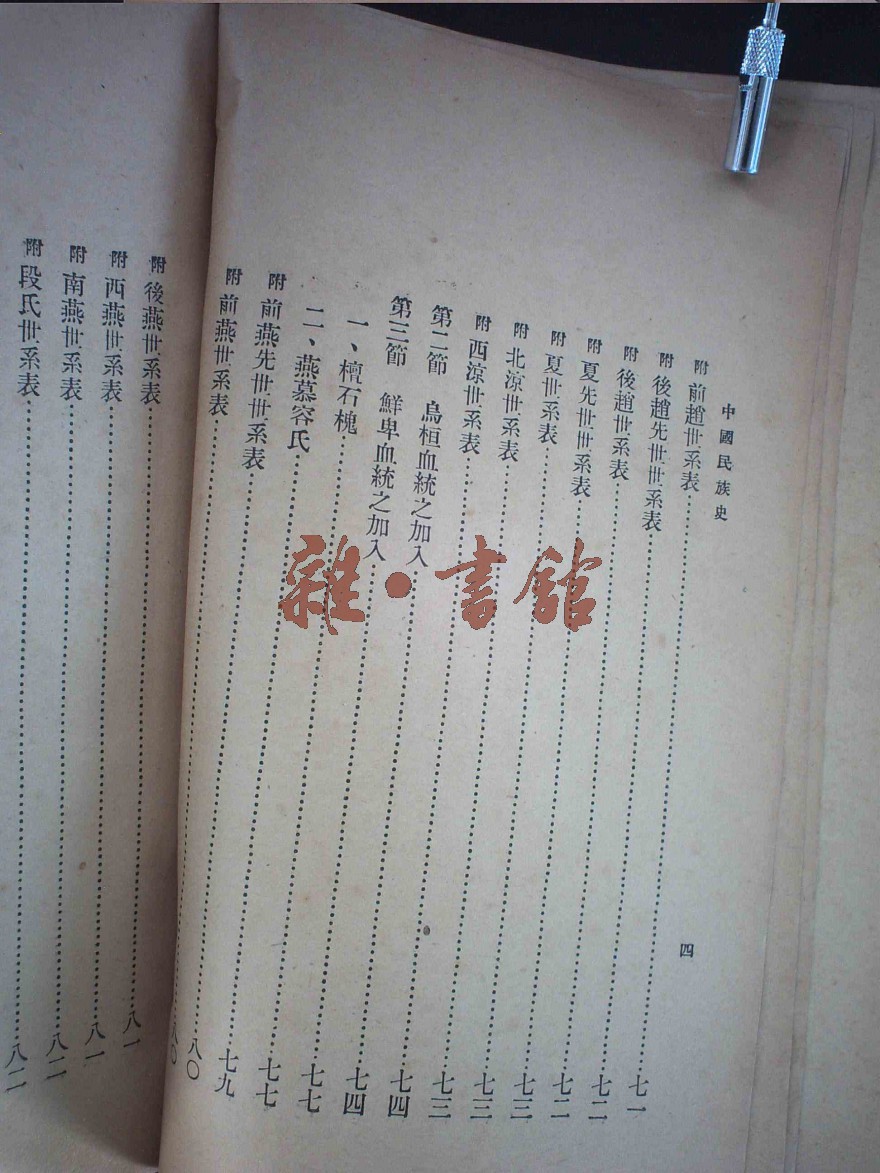 中國民族史　四
附 前趙世系表……七一
附 後趙先世世系表……七二
附 後趙世系表……七二
附 夏先世世系表……七三
附 夏世系表……七三
附 北涼世系表……七三
附 西涼世系表……七四
第二節　烏桓血統之加入……七四
第三節　鮮卑血統之加入……七七
一、檀石槐……七七
二、燕慕容氏……七九
附 前燕先世世系表……八〇
附 前燕世系表……八〇
附 後燕世系表……八一
附 西燕世系表……八一
附 南燕世系表……八二
附 段氏世系表……八二
雜·書館